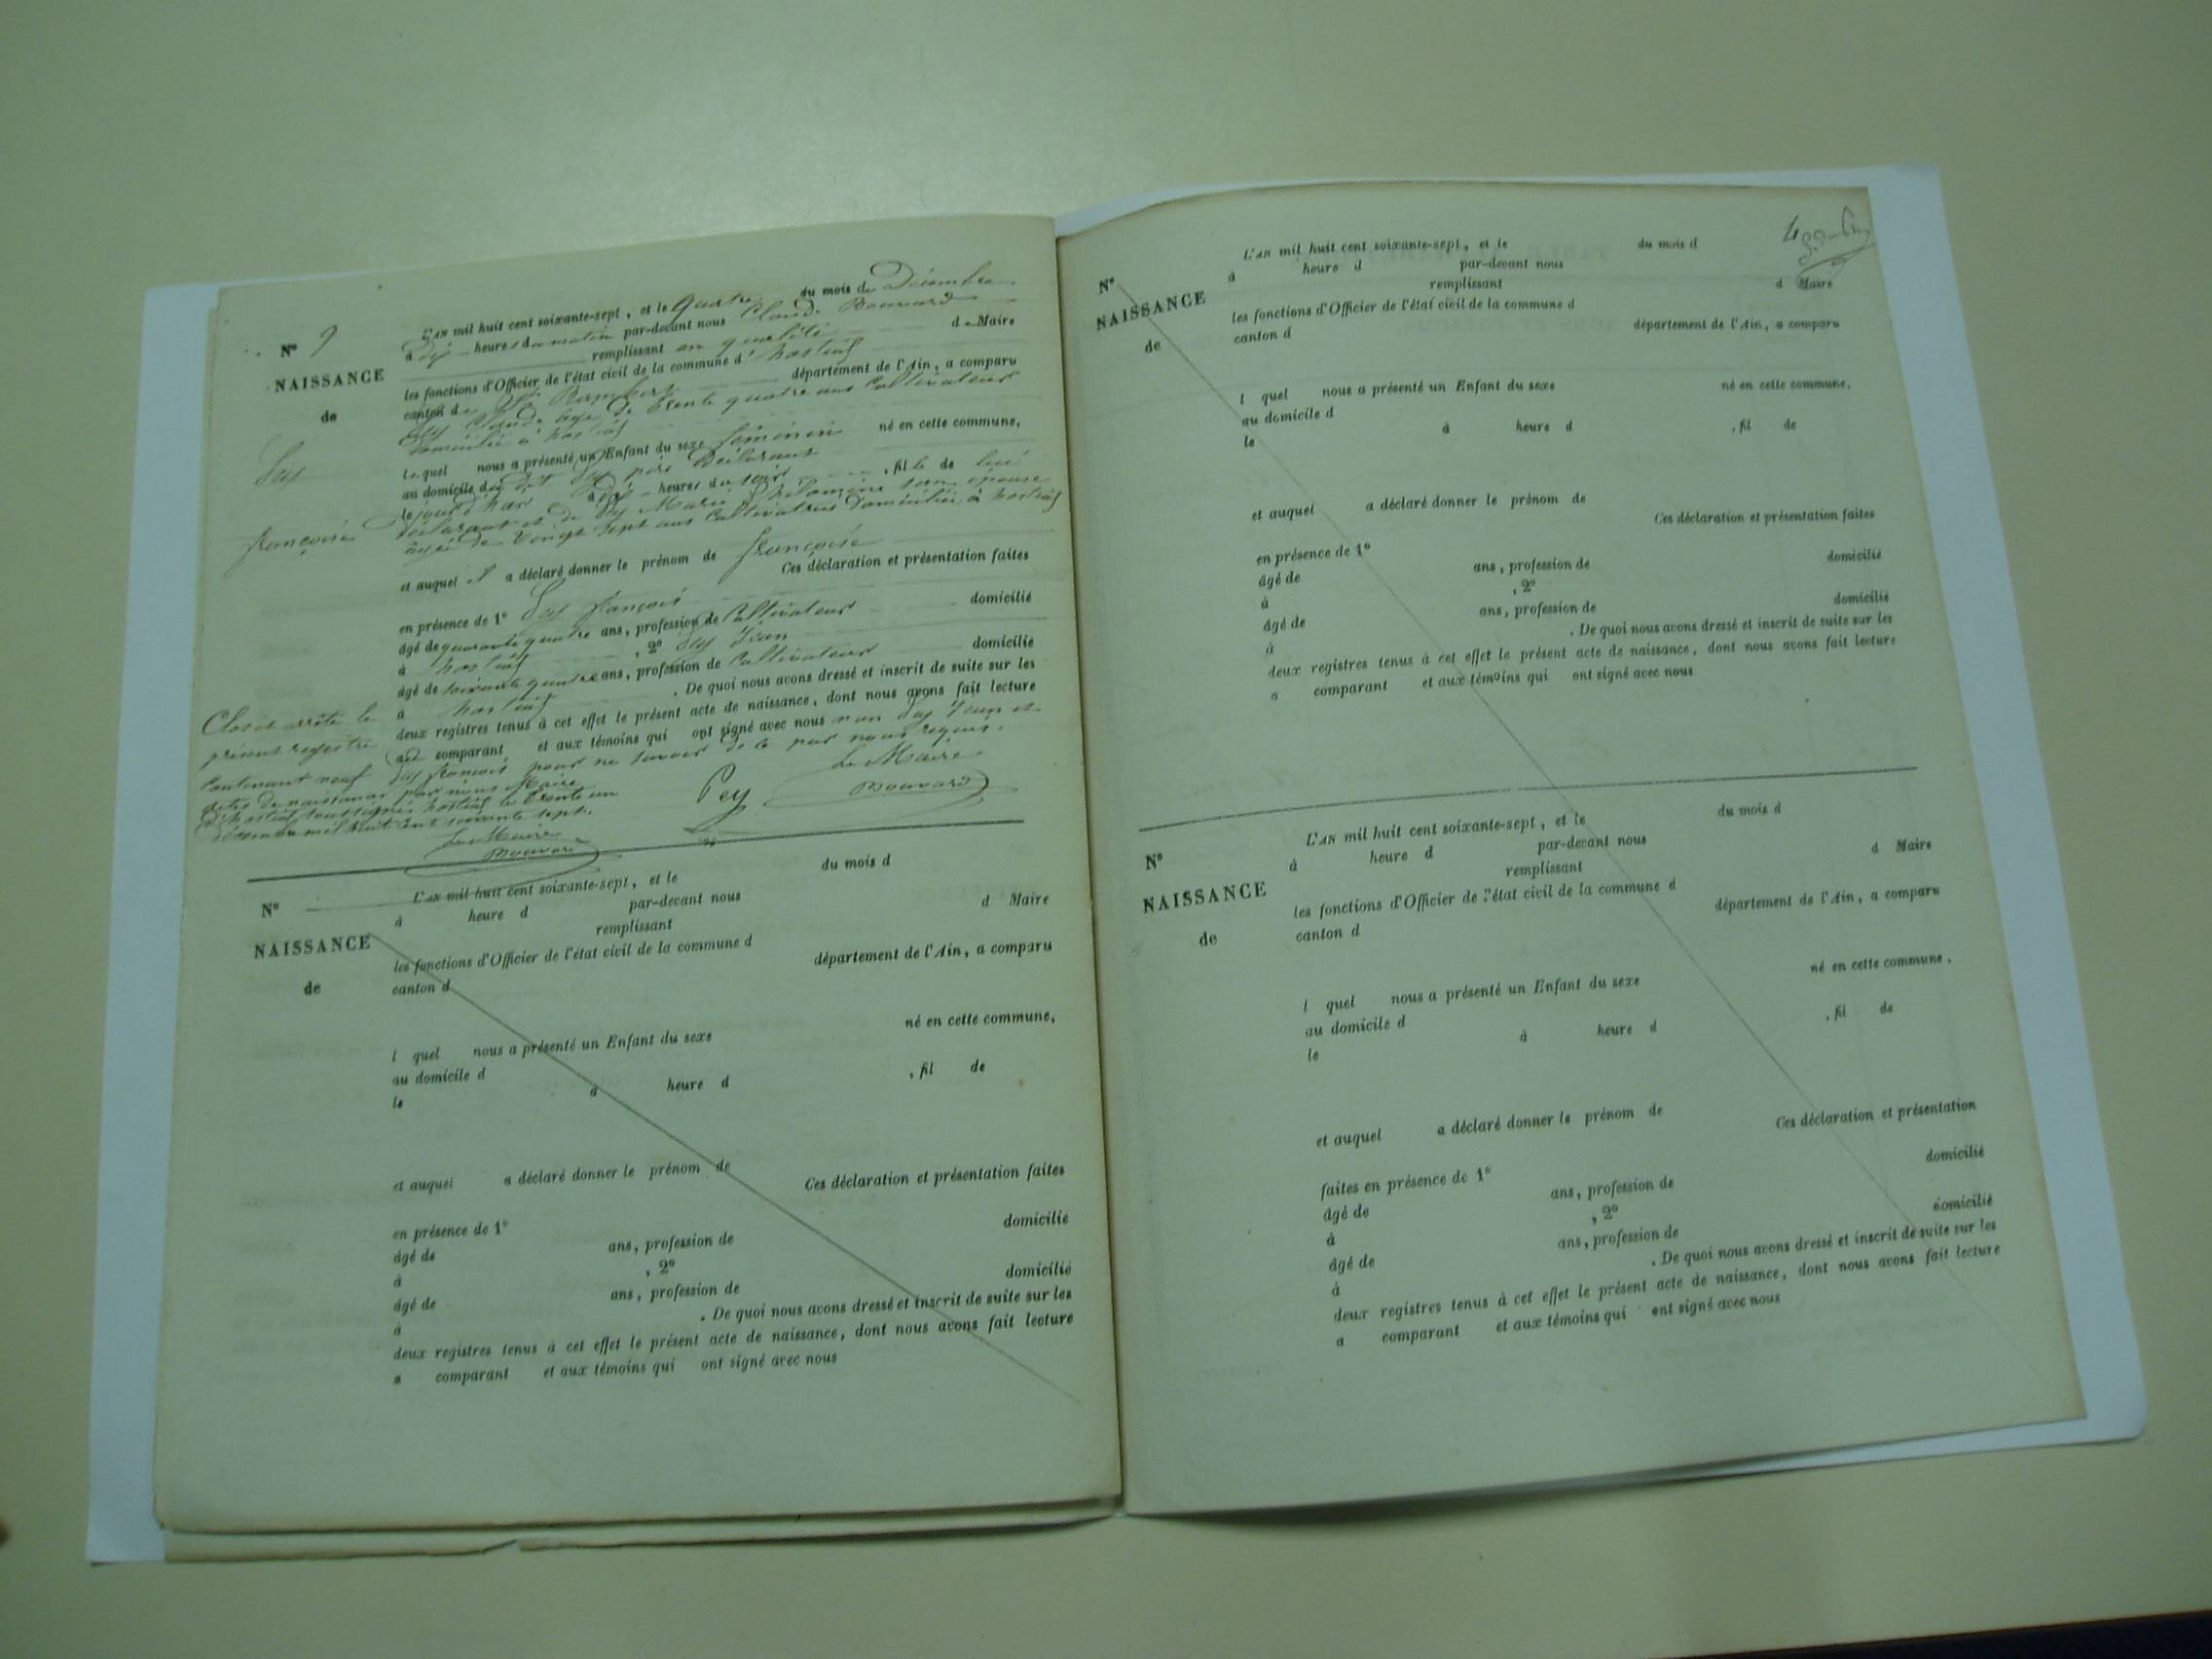 N° 9
NAISSANCE
de
Pey
françoise
L'AN mil huit cent soixante-sept, et le Quatre du mois de Décembre
à dix heures du matin par-devant nous Claude Bouvard
remplissant en qualité de Maire
les fonctions d'Officier de l'état civil de la commune d'hostias
canton de St Rambert département de l'Ain, a comparu
Pey Claude âgé de trente quatre ans Cultivateur
domicilié à hostias
lequel nous a présenté un Enfant du sexe féminin né en cette commune,
au domicile du dit Pey père Déclarant
le jour d'hier à dix heures du soir, fille de lui
déclarant et de Pey Marie Philomène son épouse
âgée de Vingt sept ans Cultivatrice domiciliée à hostias
et auquel il a déclaré donner le prénom de françoise
Ces déclaration et présentation faites
en présence de 1° Pey françois
âgé de quarante quatre ans, profession de Cultivateur domicilié
à hostias, 2° Pey Jean
âgé de soixante quatre ans, profession de Cultivateur domicilié
à hostias. De quoi nous avons dressé et inscrit de suite sur les
deux registres tenus à cet effet le présent acte de naissance, dont nous avons fait lecture
au comparant et aux témoins qui ont signé avec nous non Pey Jean et
Pey françois pour ne savoir de ce par nous requis.
Le Maire
Pey Bouvard
Clos et arrêté le
présent registre
Contenant neuf
actes de naissances par nous Maire
d'hostias soussigné hostias le trente un
décembre mil huit cent soixante sept.
Le Maire
Bouvard
N°
NAISSANCE
de
L'AN mil huit cent soixante-sept, et le du mois d
à heure d par-devant nous
remplissant d Maire
les fonctions d'Officier de l'état civil de la commune d
canton d département de l'Ain, a comparu
l quel nous a présenté un Enfant du sexe né en cette commune,
au domicile d
le à heure d , fil de
et auquel a déclaré donner le prénom de
Ces déclaration et présentation faites
en présence de 1°
âgé de ans, profession de domicilié
à , 2°
âgé de ans, profession de domicilié
à . De quoi nous avons dressé et inscrit de suite sur les
deux registres tenus à cet effet le présent acte de naissance, dont nous avons fait lecture
a comparant et aux témoins qui ont signé avec nous
4
N°
NAISSANCE
de
L'AN mil huit cent soixante-sept, et le du mois d
à heure d par-devant nous
remplissant d Maire
les fonctions d'Officier de l'état civil de la commune d
canton d département de l'Ain, a comparu
l quel nous a présenté un Enfant du sexe né en cette commune,
au domicile d
le à heure d , fil de
et auquel a déclaré donner le prénom de
Ces déclaration et présentation faites
en présence de 1°
âgé de ans, profession de domicilié
à , 2°
âgé de ans, profession de domicilié
à . De quoi nous avons dressé et inscrit de suite sur les
deux registres tenus à cet effet le présent acte de naissance, dont nous avons fait lecture
a comparant et aux témoins qui ont signé avec nous
N°
NAISSANCE
de
L'AN mil huit cent soixante-sept, et le du mois d
à heure d par-devant nous
remplissant d Maire
les fonctions d'Officier de l'état civil de la commune d
canton d département de l'Ain, a comparu
l quel nous a présenté un Enfant du sexe né en cette commune.
au domicile d
le à heure d , fil de
et auquel a déclaré donner le prénom de
Ces déclaration et présentation
faites en présence de 1°
âgé de ans, profession de domicilié
à , 2°
âgé de ans, profession de domicilié
à . De quoi nous avons dressé et inscrit de suite sur les
deux registres tenus à cet effet le présent acte de naissance, dont nous avons fait lecture
a comparant et aux témoins qui ont signé avec nous